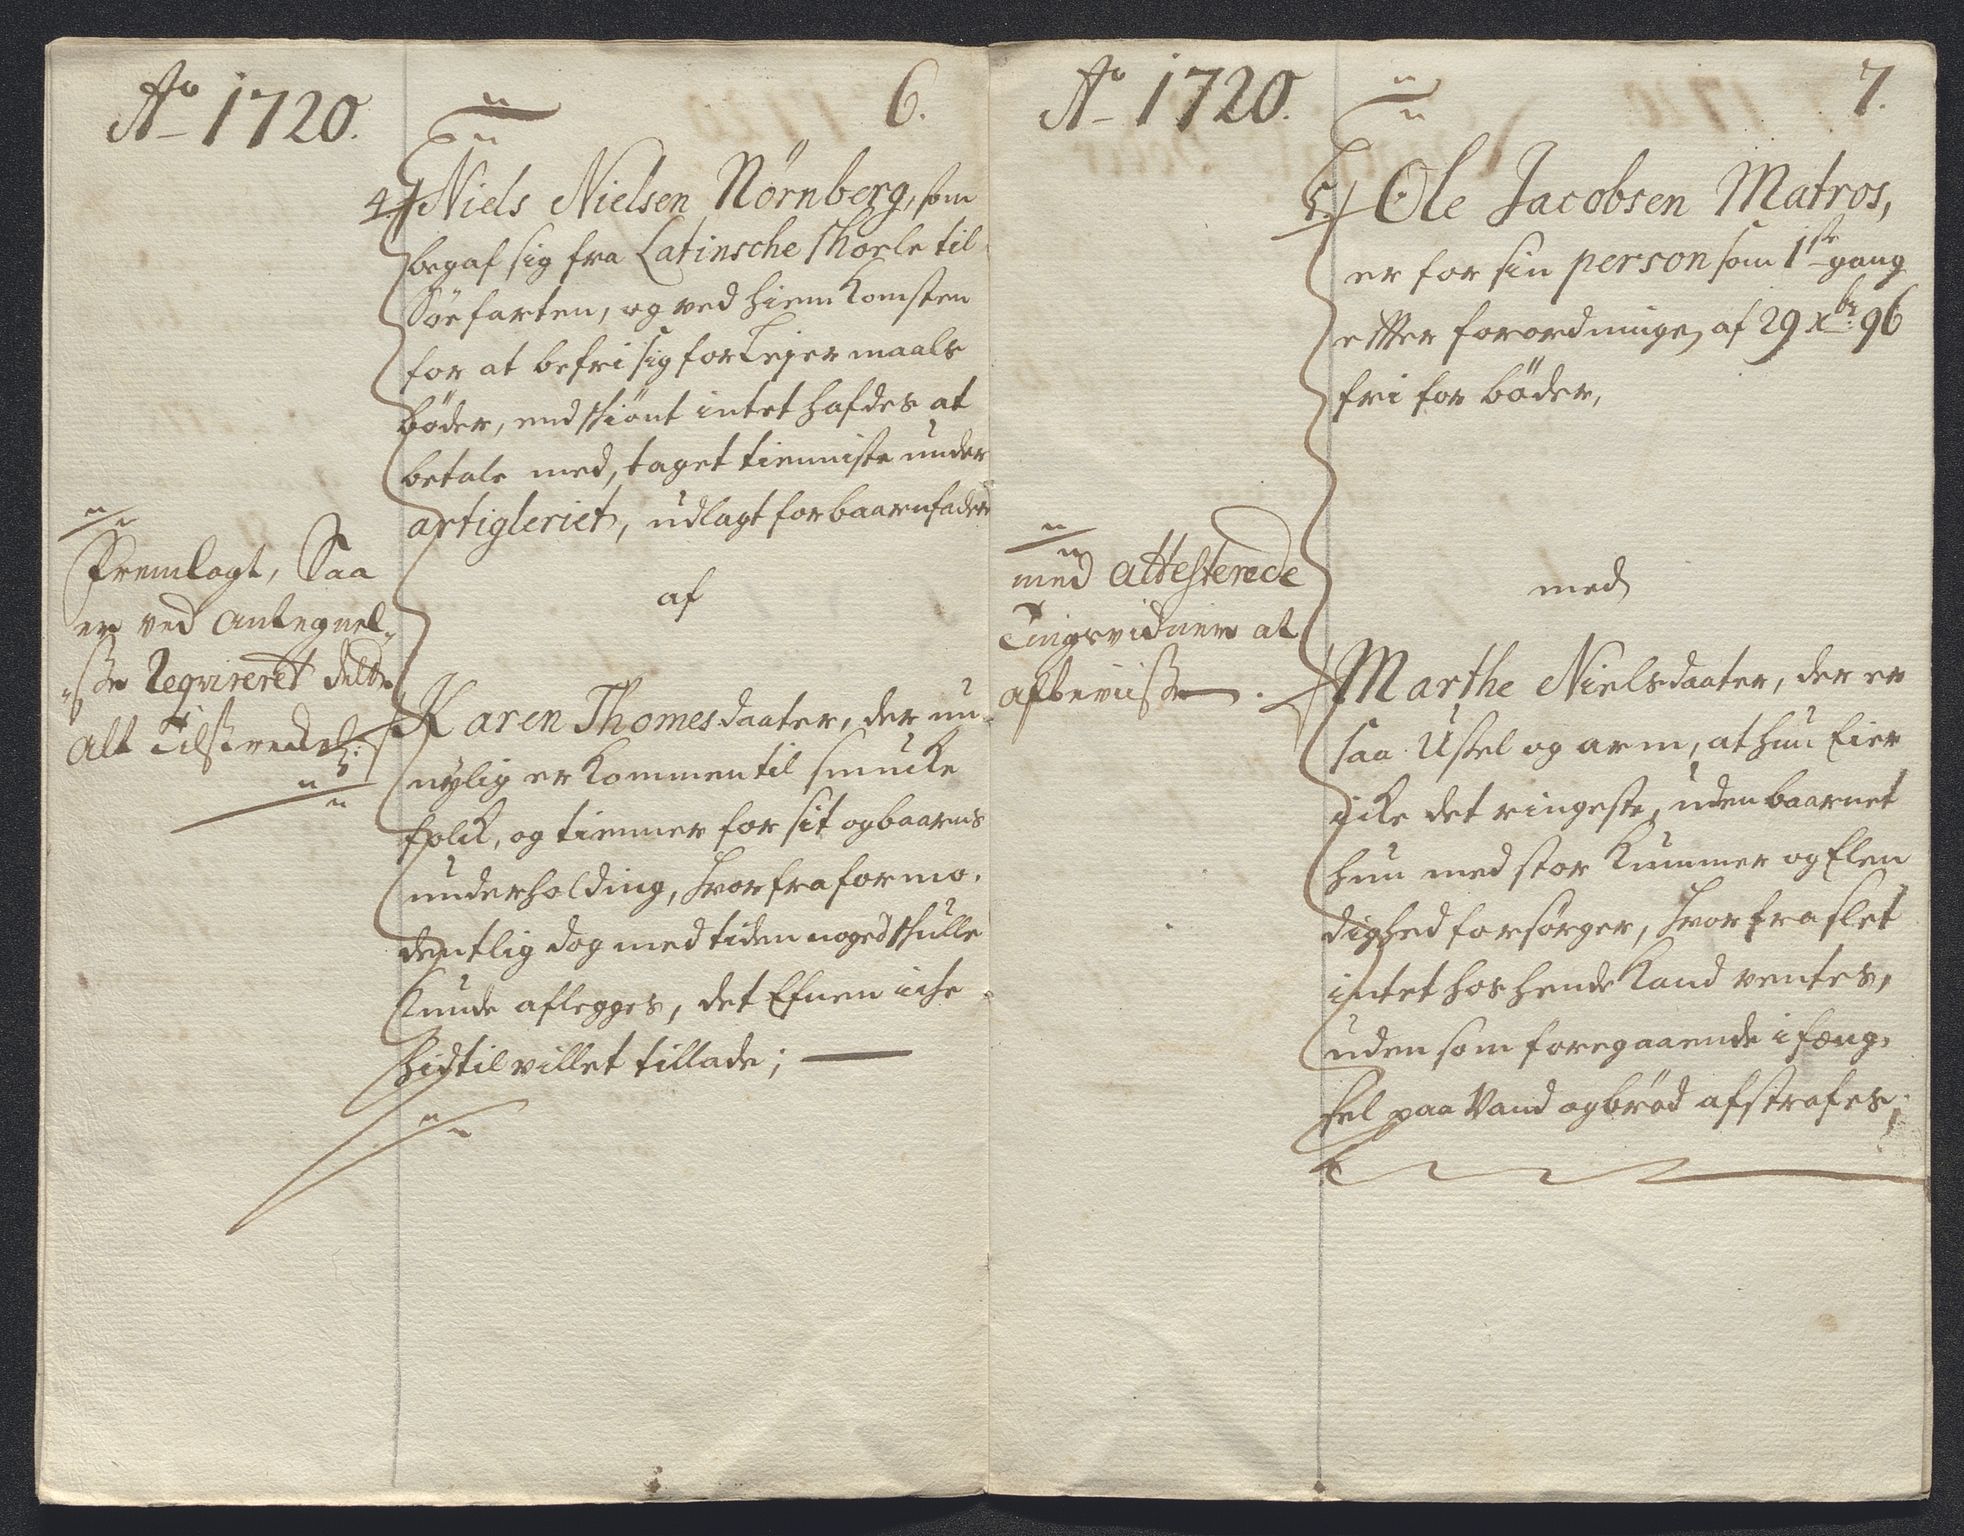 Ao 1720.
6.
4/ Niels Nielsen Nörnberg, som
begaf sig fra Latinsche Skoele til
Söefarten, og ved hiemkomsten
for at befri sig for Leyermaals
böder, endskiönt intet hafdes at
betale med, taget tienniste under
artigleriet, udlagt for baarnfader
af
Karen Thomesdaater, der nu
nylig er kommen til smucke
folck, og tienner for sit og baarns
underholding, hvorfra formo-
dentlig dog med tiden noged skulle
kunde aflegges, det Efnen icke
hidtil villet tillade;
Fremlagt, Saa
er ved antegnel-
ße Reqvireret dette
alt Tilstreckel:
Ao 1720.
7.
5/ Ole Jacobsen Matros,
er for sin person som 1ste gang
etter forordningen af 29 xbr: 96
fri for böder,
med
Marthe Nielsdaater, der er
saa Ussel og arm, at hun Eier
icke det ringeste, uden baarnet
hun med stor kummer og Elen
dighed forsörger, hvorfra slet
intet hos hende kand ventes,
uden som foregaaende i fæng-
sel paa Vand og bröd afstrafes;
med attesterede
Tingsvidner at
afbeviiße.